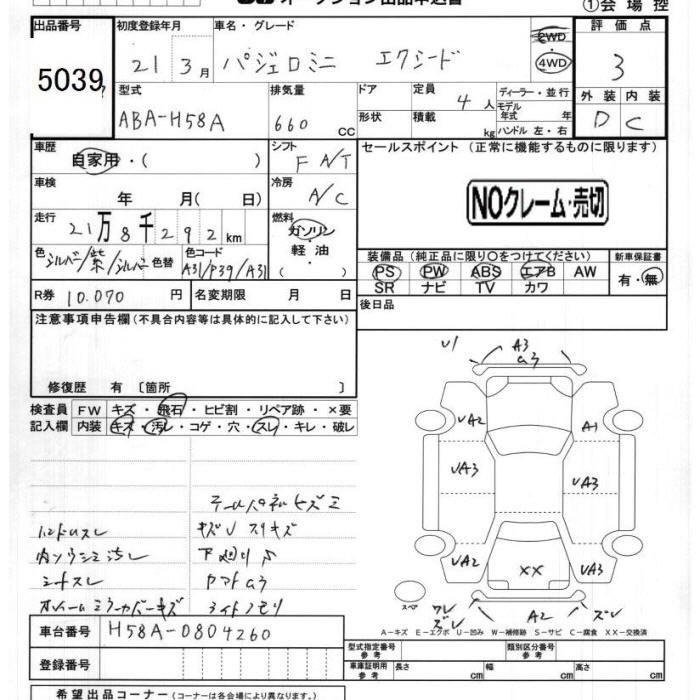 ①会場控
出品番号 初度登録年月 車名・グレード 評価点
5039 21 3月 パジェロミニ エクシード 2WD 4WD 3
型式 排気量 ドア 定員 ディーラー・並行 外装 内装
ABA-H58A 660 CC 形状 積載 4人 kg モデル年式 年 ハンドル 左・右 D C
車歴 シフト セールスポイント (正常に機能するものに限ります)
自家用・( ) F A/T
車検 年 月( 日) 冷房 A/C
NOクレーム・売切
走行 21万8千292km 燃料 ガソリン・軽油・( )
色 シルバー/紫/シルバー 色替 色コード A31/P39/A31
装備品 (純正品に限り〇をつけてください) 新車保証書
PS PW ABS エアB AW 有・無
SR ナビ TV カワ
R券 10.070 円 名変期限 月 日 後日品
注意事項申告欄(不具合内容等は具体的に記入して下さい)
修復歴 有 〔箇所 〕
検査員 FW キズ・飛石・ヒビ割・リペア跡・×要
記入欄 内装 キズ・汚レ・コゲ・穴・スレ・キレ・破レ
U1 A3
a3
UA2 A1
UA3 UA3
UA2 XX UA3
スペア ワレ ズレ A2 ズレ
ハンドルスレ キズU スリキズ
シートスレ
A-キズ E-エクボ U-凹み W-補修跡 S-サビ C-腐食 XX-交換済
車台番号 H58A-0804260
型式指定番号 参考 類別区分番号 参考
登録番号 車庫証明用 参考 長さ cm 幅 cm 高さ cm
希望出品コーナー (コーナーは各会場により異なります。)